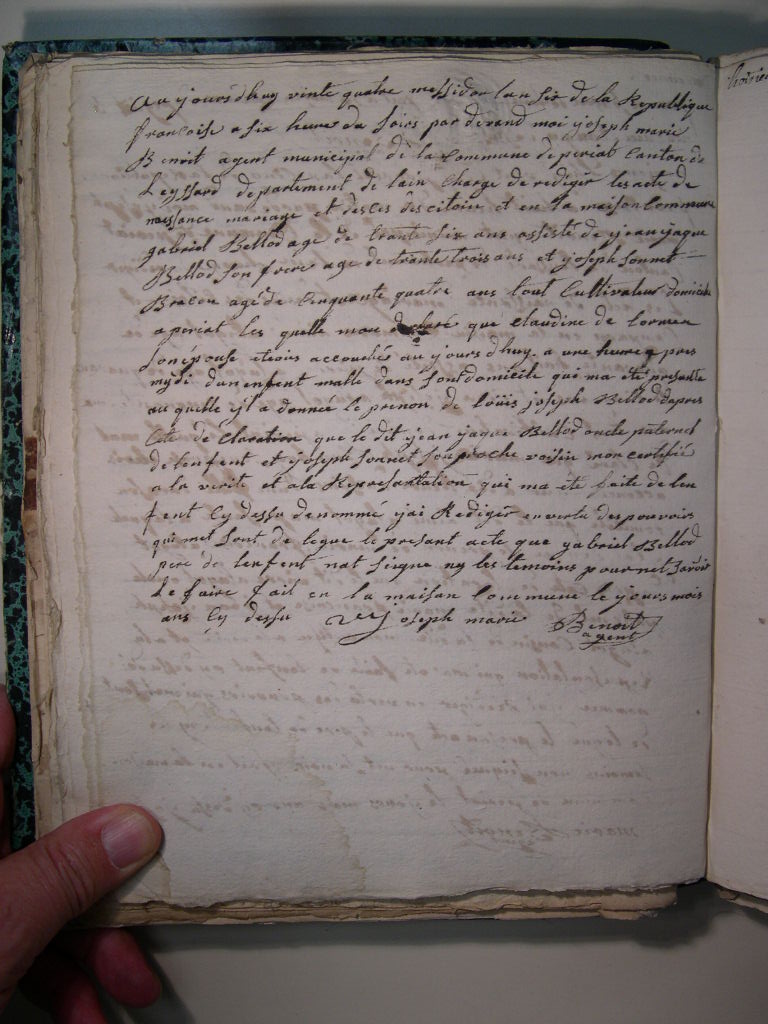 aujoursdhuy vinte quatre messidor lan six de la Republique
francoise a six heure du soirs par devand moi joseph marie
Benoit agent municipal de la commune de periat Canton de
Leyssard departement de lain charge de rediger les acte de
naissance mariage et desces des citoien et en la maison Commune
gabriel Bellod age de trante six ans assisté de jean jaque
Bellod son frere age de trante trois ans et joseph sonnet
age de Cinquante quatre ans tout Cultivateur domicilie
a periat les quelle mon declaré que claudine de lorme
son épouse etoies accouchée au jours dhuy a une heure apres
mydi dun enfent malle dans son domicile qui ma été presante
au quelle yl a donnée le prenon de loüis joseph Bellod dapres
Cete déClaration que le dit jean jaque Bellod oncle paternel
de lenfent et joseph sonnet son proche voisin mon certifié
a la verite et ala Represantation qui ma été faite de len
fent Cy dessu denomme jai Rediger envertu des pouvoirs
qui met sont de legue le presant acte que gabriel Bellod
pere de lenfent nat signe ny les temoins pour net savoir
Le faire fait en la maison Commune le jours mois
ans Cy dessu joseph marie Benoit
agent